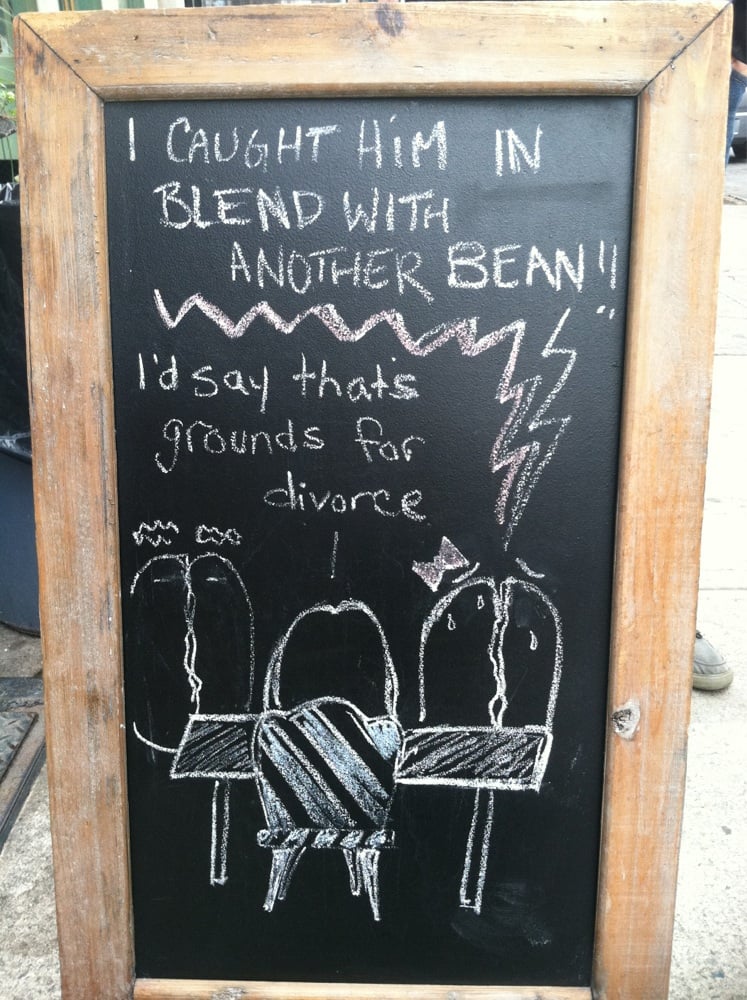 I CAUGHT HiM IN
BLEND WITH
ANOTHER BEAN!!
I'd say that's
grounds for
divorce